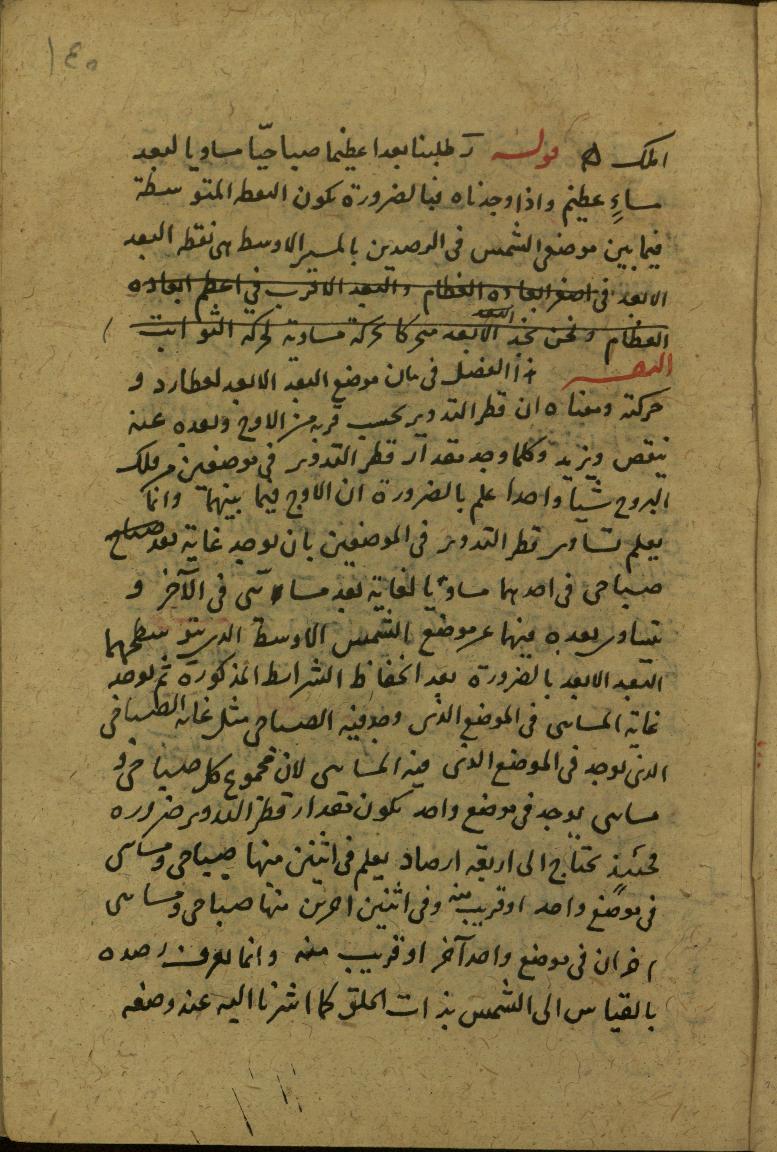 ١٤٠
الملك ۵ قوله ر طلبنا بعدا عظيما صباحيّا مساويا لبعد
مساءٍ عظيم واذا وجدناه فبالضرورة تكون النقطه المتوسطة
فيما بين موضعي الشمس في الرصدين بالمسير الاوسط هى نقطه البعد
الابعد في اصغر ابعاده العظام والبعد الاقرب في اعظم ابعاده
العظام ونحن نجد البعد الابعد متحركا حركة مساوية لحركة الثوابت
التفسير هذا الفصل في بيان موضع البعد الابعد لعطارد و
حركته ومعناه ان قطر التدوير بحسب قربه من الاوج وبعده عنه
ينقص ويزيد وكلما وجد مقدار قطر التدوير في موضعين من فلك
البروج شيأ واحدا علم بالضرورة ان الاوج فيما بينهما وانما
يعلم تساوى قطر التدوير في الموضعين بان يوجد غاية بعد صباح
صباحي في احدهما مساويا لغاية بعد مسائى في الآخر و
تساوى بعده فيهما عن موضع الشمس الاوسط الذى يتوسطهما
البعد الابعد بالضرورة بعد انحفاظ الشرايط المذكورة ثم يوجد
غاية المسائى في الموضع الذى وجد فيه الصباحي مثل غاية الصباحي
الذى يوجد في الموضع الذى فيه المسائى لان مجموع كل صباحي و
مسائى يوجد في موضع واحد يكون مقدار قطر التدوير ضروره
فحينئذٍ نحتاج الى اربعة ارصاد يعلم في اثنين منها صباحي ومسائى
في موضع واحد او قريب منه وفي اثنين اخرين منها صباحي ومسائى
اخران في موضع واحد آخر او قريب منه وانما يعرف رصده
بالقياس الى الشمس بذات الحلق كما اشرنا اليه عند وصفه